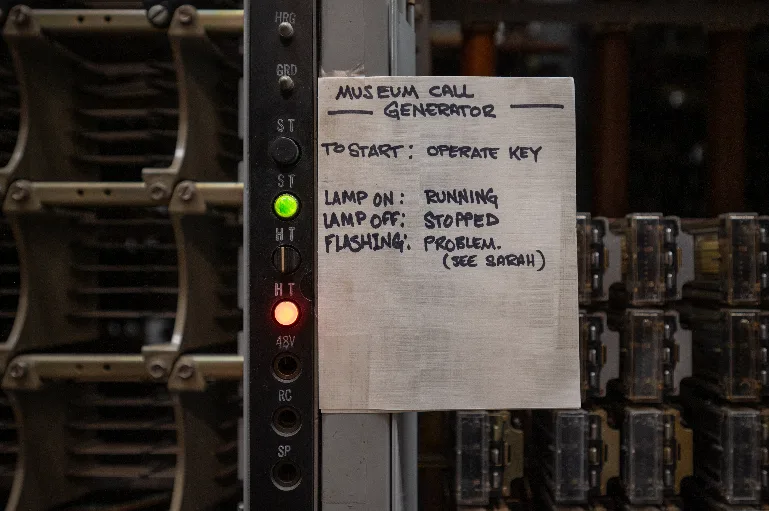 HRG
GRD
ST
ST
HT
HT
48V
RC
SP
MUSEUM CALL
GENERATOR
TO START: OPERATE KEY
LAMP ON: RUNNING
LAMP OFF: STOPPED
FLASHING: PROBLEM.
(SEE SARAH)